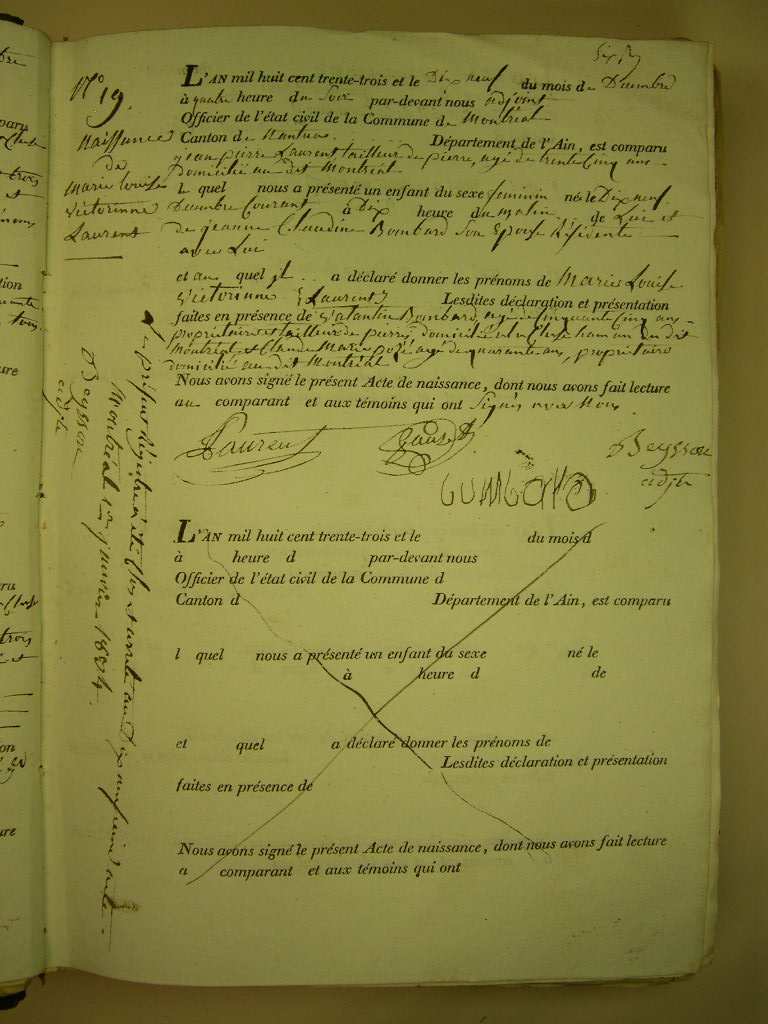 N.o 19.
Naissance
de
Marie Louise
Victorinne
Laurent
L'AN mil huit cent trente-trois et le Dix neuf du mois de Decembre
à quatre heure du Soir par-devant nous adjoint
Officier de l'état civil de la Commune de Montréal
Canton de Nantua Département de l'Ain, est comparu
jean pierre Laurent tailleur de pierre, agé de trente cinq ans
Domicilié au dit Montréal
l quel nous a présenté un enfant du sexe feminin né le Dix neuf
Decembre Courant à Dix heure du matin de Lui et
de jeanne Claudine Bombard Son Epouse Résidente
avec Lui
et au quel il a déclaré donner les prénoms de Marie Louise
Victorinne (Laurent) Lesdites déclaration et présentation
faites en présence de Bombard, agé de cinquante cinq ans
propriétaire et tailleur de pierre, domicilié dit
Montréal, et Claude Marie agé de quarante ans, propriétaire
domicilié au dit Montréal
Nous avons signé le présent Acte de naissance, dont nous avons fait lecture
au comparant et aux témoins qui ont Signés avec Nous
Laurent
Beysson
adjt
L'AN mil huit cent trente-trois et le du mois d
à heure d par-devant nous
Officier de l'état civil de la Commune d
Canton d Département de l'Ain, est comparu
l quel nous a présenté un enfant du sexe né le
à heure d de
et quel a déclaré donner les prénoms de
Lesdites déclaration et présentation
faites en présence de
Nous avons signé le présent Acte de naissance, dont nous avons fait lecture
a comparant et aux témoins qui ont
Le présent Régistre a été Clos et arrêté au Dix neuvième acte
Montréal 1er janvier 1834
Beysson
adjt